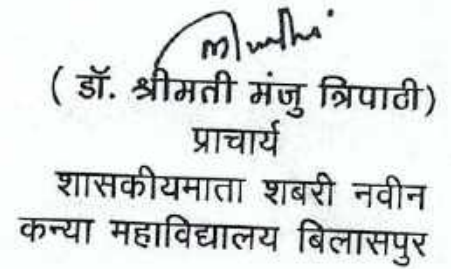 ( डॉ. श्रीमती मंजु त्रिपाठी)
प्राचार्य
शासकीयमाता शबरी नवीन
कन्या महाविद्यालय बिलासपुर